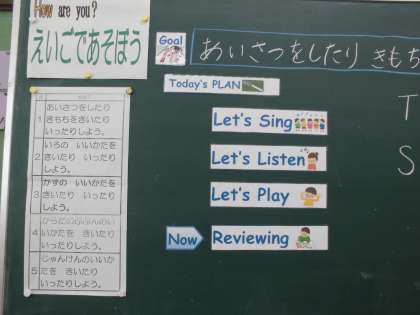 How are you?
えいごであそぼう
Goal
あいさつをしたり きもち
Today's PLAN
T
S
Let's Sing
Let's Listen
Let's Play
Now
Reviewing
1
あいさつをしたり
きもちをきいたり
いったりしよう。
2
いろの いいかたを
きいたり いったり
しよう。
3
かずの いいかたを
きいたり いったり
しよう。
4
からだのぶぶんのい
いかたを きいたり
いったりしよう。
5
じゃんけんのいいか
たを きいたり
いったりしよう。